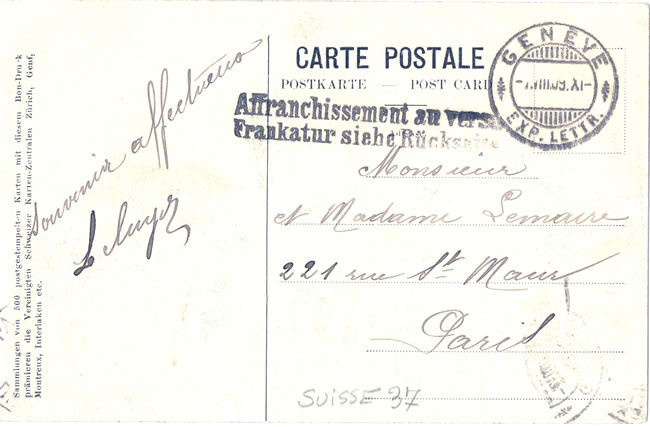 Sammlungen von 500 postgestempelten Karten mit diesem Bon-Druck
prämieren die Vereinigten Schweizer Karten-Zentralen Zürich, Genf,
Montreux, Interlaken etc.
Souvenir affectueux
CARTE POSTALE
POSTKARTE — POST CARD
GENÈVE
EXP. LETTR.
Affranchissement au verso
Frankatur siehe Rückseite
Monsieur
et Madame Lemaire
221 rue St. Maur
Paris
SUISSE 37